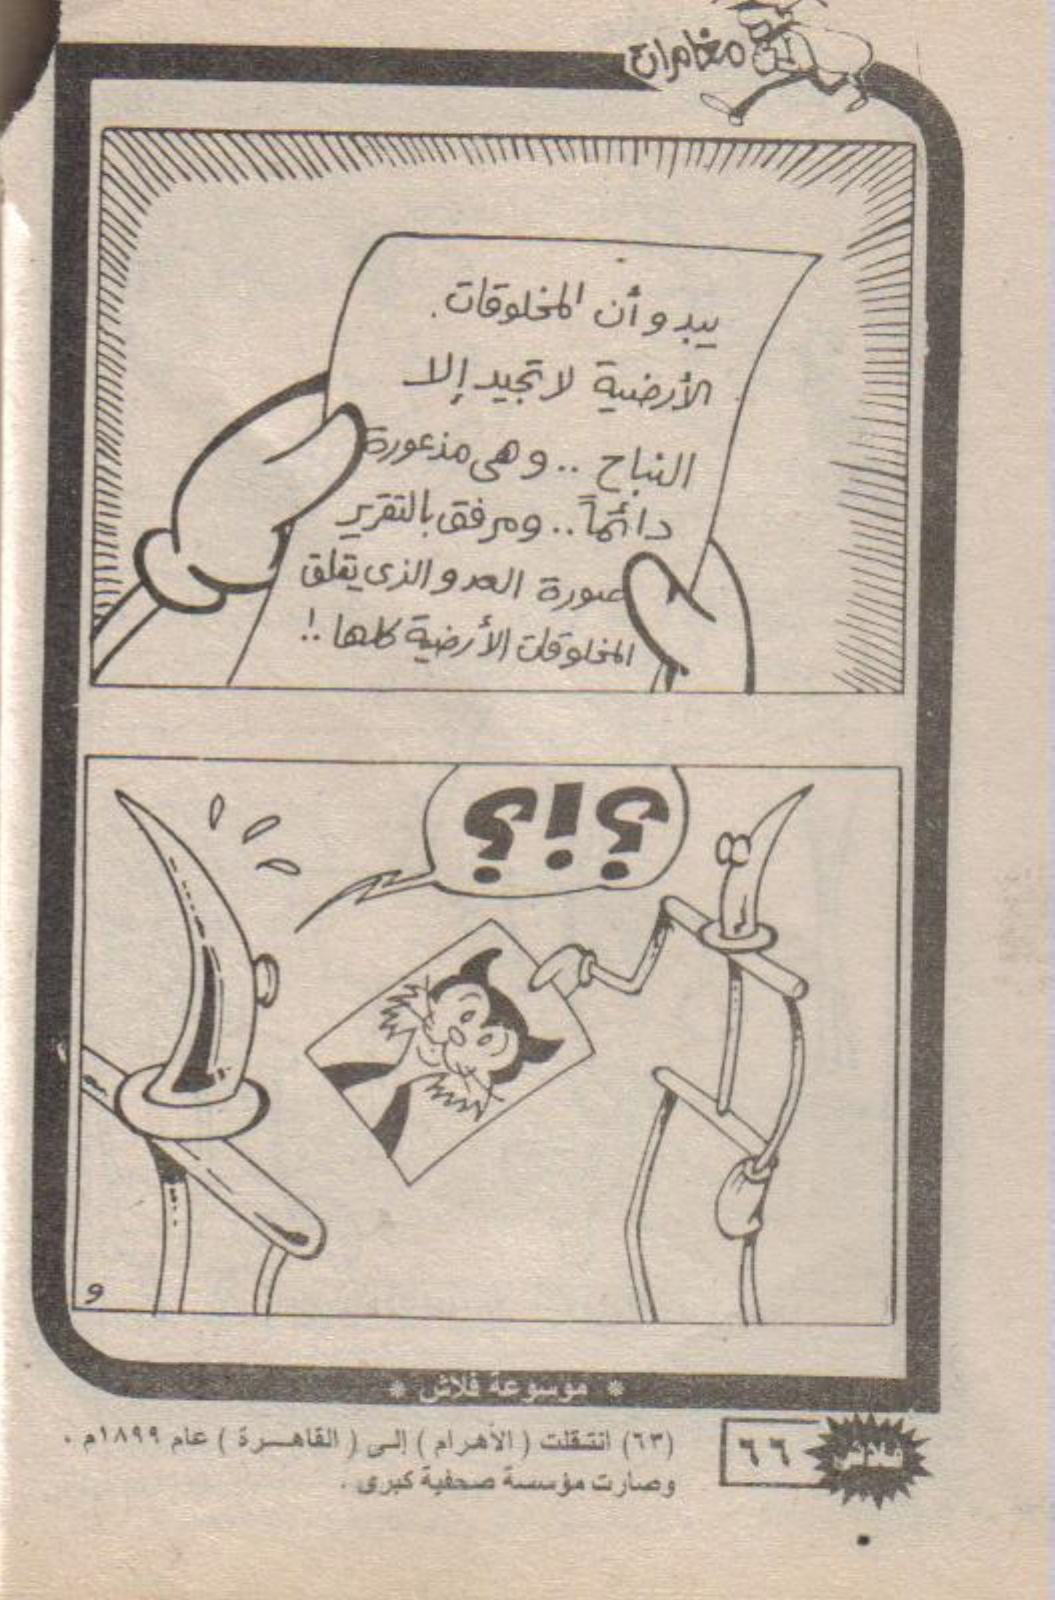 مغامرات
يبدو أن المخلوقات
الأرضية لا تجيد إلا
النباح .. وهى مذعورة
دائماً .. ومرفق بالتقرير
صورة العدو الذى يقلق
المخلوقات الأرضية كلها !.
؟!؟
و
* موسوعة فلاش *
(٦٣) انتقلت ( الأهرام ) إلى ( القاهرة ) عام ١٨٩٩م .
وصارت مؤسسة صحفية كبرى .
فلاش ٦٦